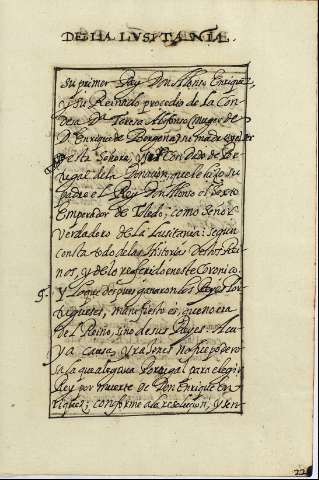 DE LA LVSITANIA.
su primer Rey Don Alonso Enriquez,
y su Reinado procedio de la Con-
desa D.ª Teresa Alfonso (muger de
D. Enrique de Borgoña)
esta Señora, y
tugal de la Donacion, que le hizo su
padre el Rey Don Alonso el Sexto
Emperador de Toledo; como Señor
verdadero de la Lusitania: segun
consta todo de las Historias destos Rei-
nos, y de lo referido en este Coronico.
9. Y lo que despues ganaron los Reyes Por-
tugueses, manifiesto es, que no era
de l Reino, sino de sus Reyes: A cu-
ya causa, y razones no fue podero-
sa la que alegava Portugal para elegir
Rey por muerte de Don Enrique En-
riquez; conforme a la resolucion, y sen-